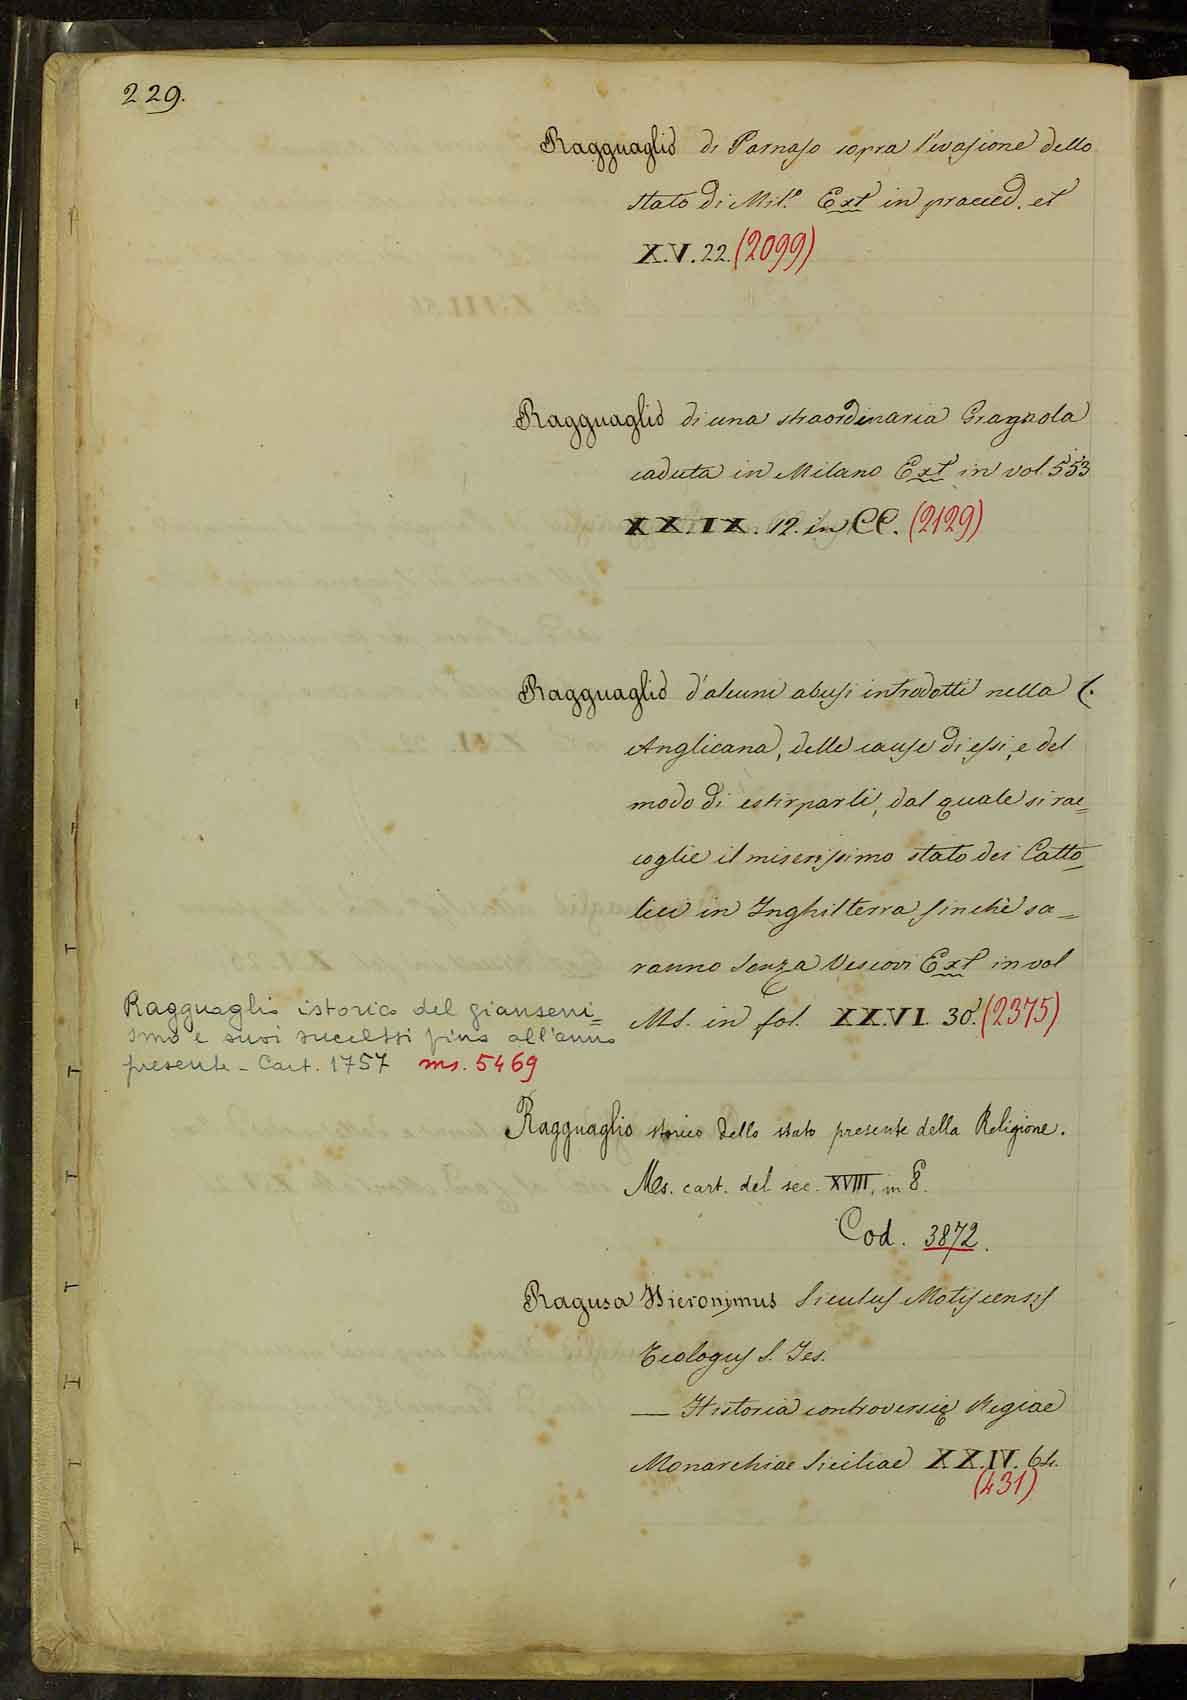 229.
Ragguaglio di Parnaso sopra l'evasione dello
stato di Mil.º Ext in praeced. et
X.V.22. (2099)
Ragguaglio di una straordinaria Gragnola
caduta in Milano Ext in vol. 553
XX.IX. 12. in CC. (2129)
Ragguaglio d'alcuni abusi introdotti nella C.
Anglicana, delle cause di essi, e del
modo di estirparli, dal quale si rac=
coglie il miserissimo stato dei Catto=
lici in Inghilterra sinchè sa=
ranno senza Vescovi Ext in vol
MS. in fol. XX.VI. 30. (2375)
Ragguaglio istorico del gianseni=
smo e suoi successi fino all'anno
presente - Cart. 1757 ms. 5469
Ragguaglio storico dello stato presente della Religione.
Ms. cart. del sec. XVIII, in 8.
Cod. 3872.
Ragusa Hieronymus Siculus Motycensis
Teologus S. Jes.
— Historia controversię Regiae
Monarchiae Siciliae XX.IV. 64.
(431)